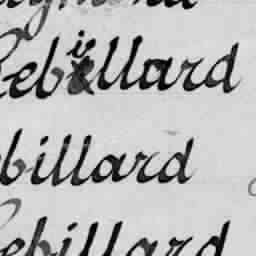 Rebillard
billard
Rebillard